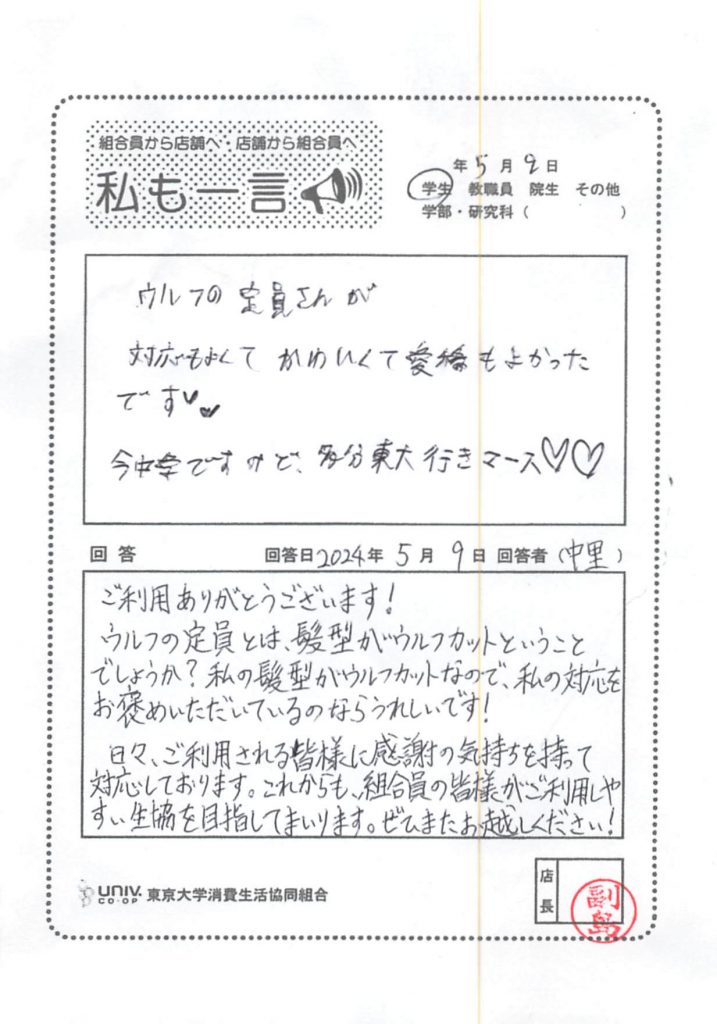 組合員から店舗へ・店舗から組合員へ
私も一言
年5月9日
学生 教職員 院生 その他
学部・研究科( )
ウルフの定員さんが
対応もよくてかわいくて愛橋もよかった
です♥♥
今中学ですので、多分東大行きマース♡♡
回答 回答日2024年5月9日 回答者(中里)
ご利用ありがとうございます!
ウルフの定員とは、髪型がウルフカットということ
でしょうか?私の髪型がウルフカットなので、私の対応を
お褒めいただいているのならうれしいです!
日々、ご利用される皆様に感謝の気持ちを持って
対応しております。これからも、組合員の皆様がご利用しや
すい生協を目指してまいります。ぜひまたお越しください!
UNIV. CO-OP 東京大学消費生活協同組合
店長
副島